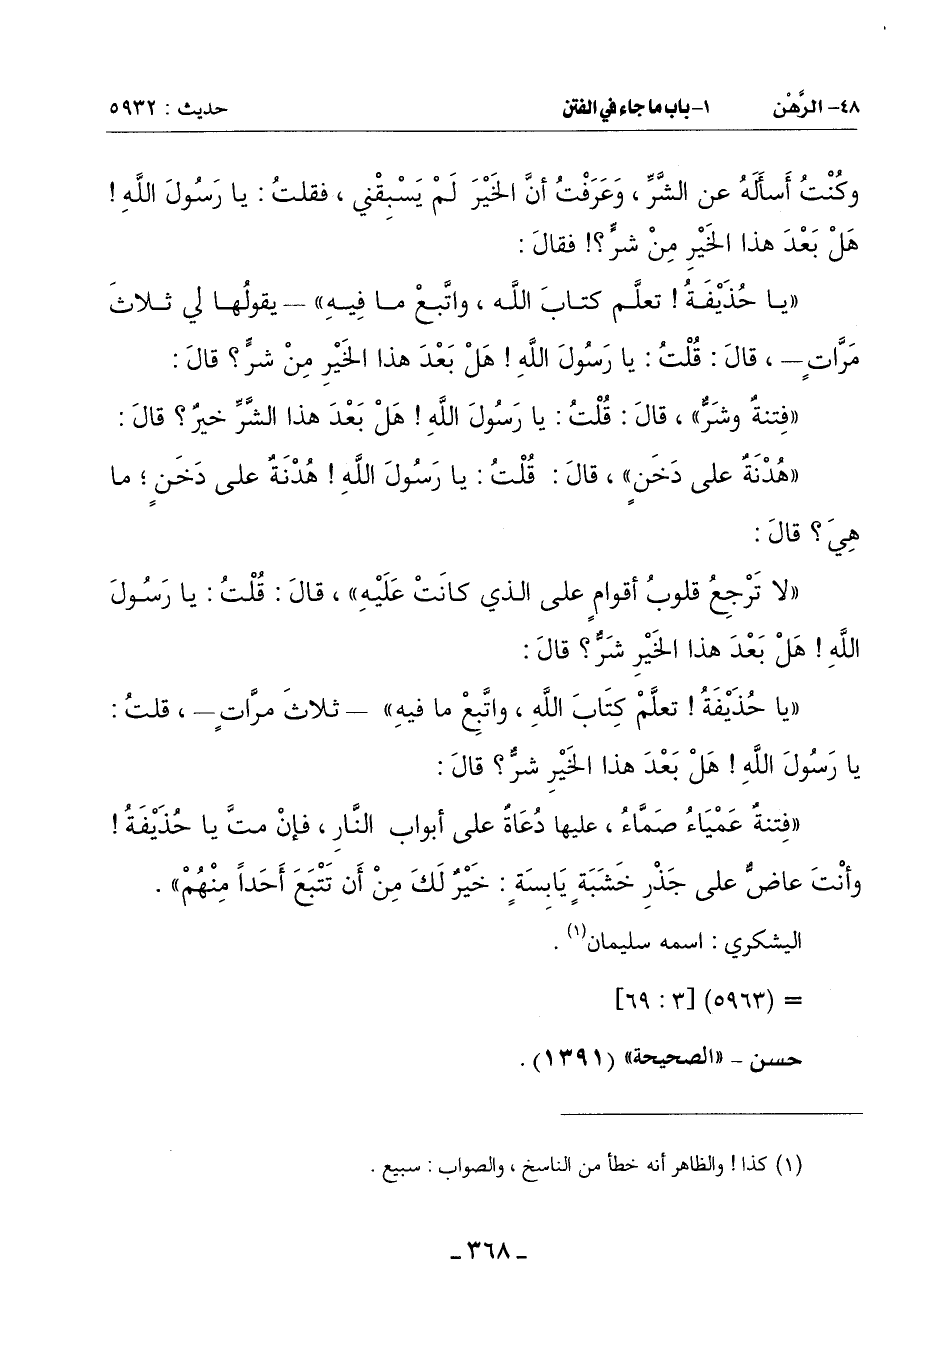 ٤٨- الرَّهْن ١- باب ما جاء في الفتن حديث : ٥٩٣٢
وكُنْتُ أَسأَلَهُ عن الشَّرِّ ، وَعَرَفْتُ أنَّ الخَيْرَ لَمْ يَسْبِقْني ، فقلتُ : يا رَسُولَ اللَّهِ !
هَلْ بَعْدَ هذا الخَيْرِ مِنْ شرٍّ ؟! فقالَ :
«يا حُذَيْفَةُ ! تعلَّم كتابَ اللَّه ، واتَّبعْ ما فِيهِ» — يقولُها لي ثلاثَ
مَرَّاتٍ — ، قالَ : قُلْتُ : يا رَسُولَ اللَّهِ ! هَلْ بَعْدَ هذا الخَيْرِ مِنْ شرٍّ ؟ قالَ :
«فِتنةٌ وشَرٌّ» ، قالَ : قُلْتُ : يا رَسُولَ اللَّهِ ! هَلْ بَعْدَ هذا الشَّرِّ خيرٌ ؟ قالَ :
«هُدْنَةٌ على دَخَنٍ» ، قالَ : قُلْتُ : يا رَسُولَ اللَّهِ ! هُدْنَةٌ على دَخَنٍ ؛ ما
هِيَ ؟ قالَ :
«لا تَرْجِعُ قلوبُ أقوامٍ على الذي كانَتْ عَلَيْهِ» ، قالَ : قُلْتُ : يا رَسُولَ
اللَّهِ ! هَلْ بَعْدَ هذا الخَيْرِ شَرٌّ ؟ قالَ :
«يا حُذَيْفَةُ ! تعلَّمْ كِتَابَ اللَّهِ ، واتَّبِعْ ما فيهِ» — ثلاثَ مرَّاتٍ — ، قلتُ :
يا رَسُولَ اللَّهِ ! هَلْ بَعْدَ هذا الخَيْرِ شرٌّ ؟ قالَ :
«فِتنةٌ عَمْيَاءُ صَمَّاءُ ، عليها دُعَاةٌ على أبوابِ النَّارِ ، فإنْ متَّ يا حُذَيْفَةُ !
وأنْتَ عاضٌّ على جَذْرِ خَشَبَةٍ يَابِسَةٍ : خَيْرٌ لَكَ مِنْ أَن تَتْبَعَ أَحَداً مِنْهُمْ» .
اليشكري : اسمه سليمان(١) .
= (٥٩٦٣) [٣ : ٦٩]
حسن – «الصحيحة» (١٣٩١) .
(١) كذا ! والظاهر أنه خطأ من الناسخ ، والصواب : سبيع .
– ٣٦٨ –